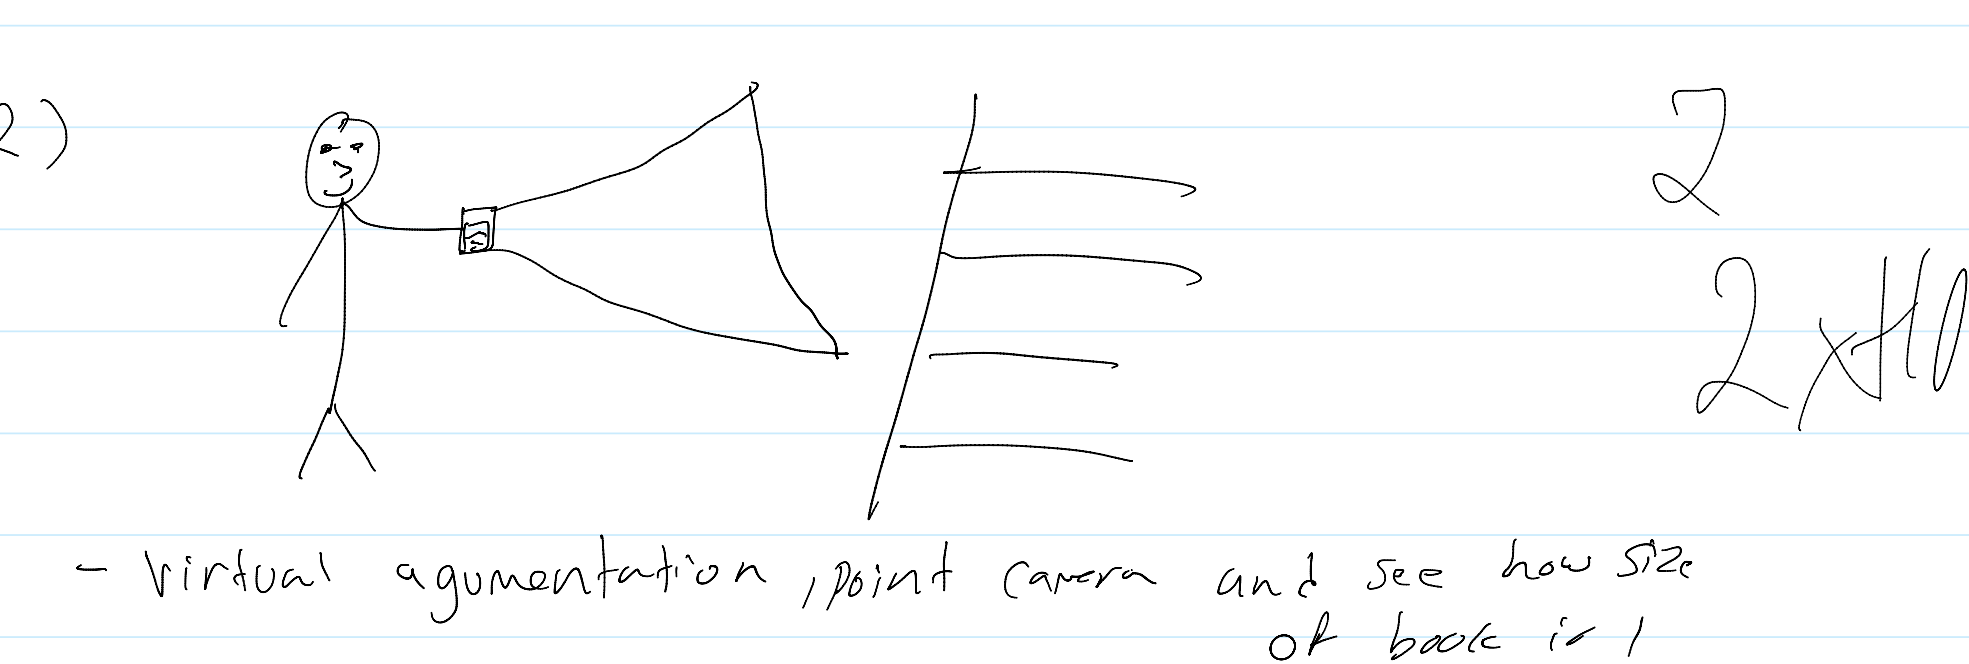 2)
2
2x
- virtual agumentation, point camera and see how size
of book is